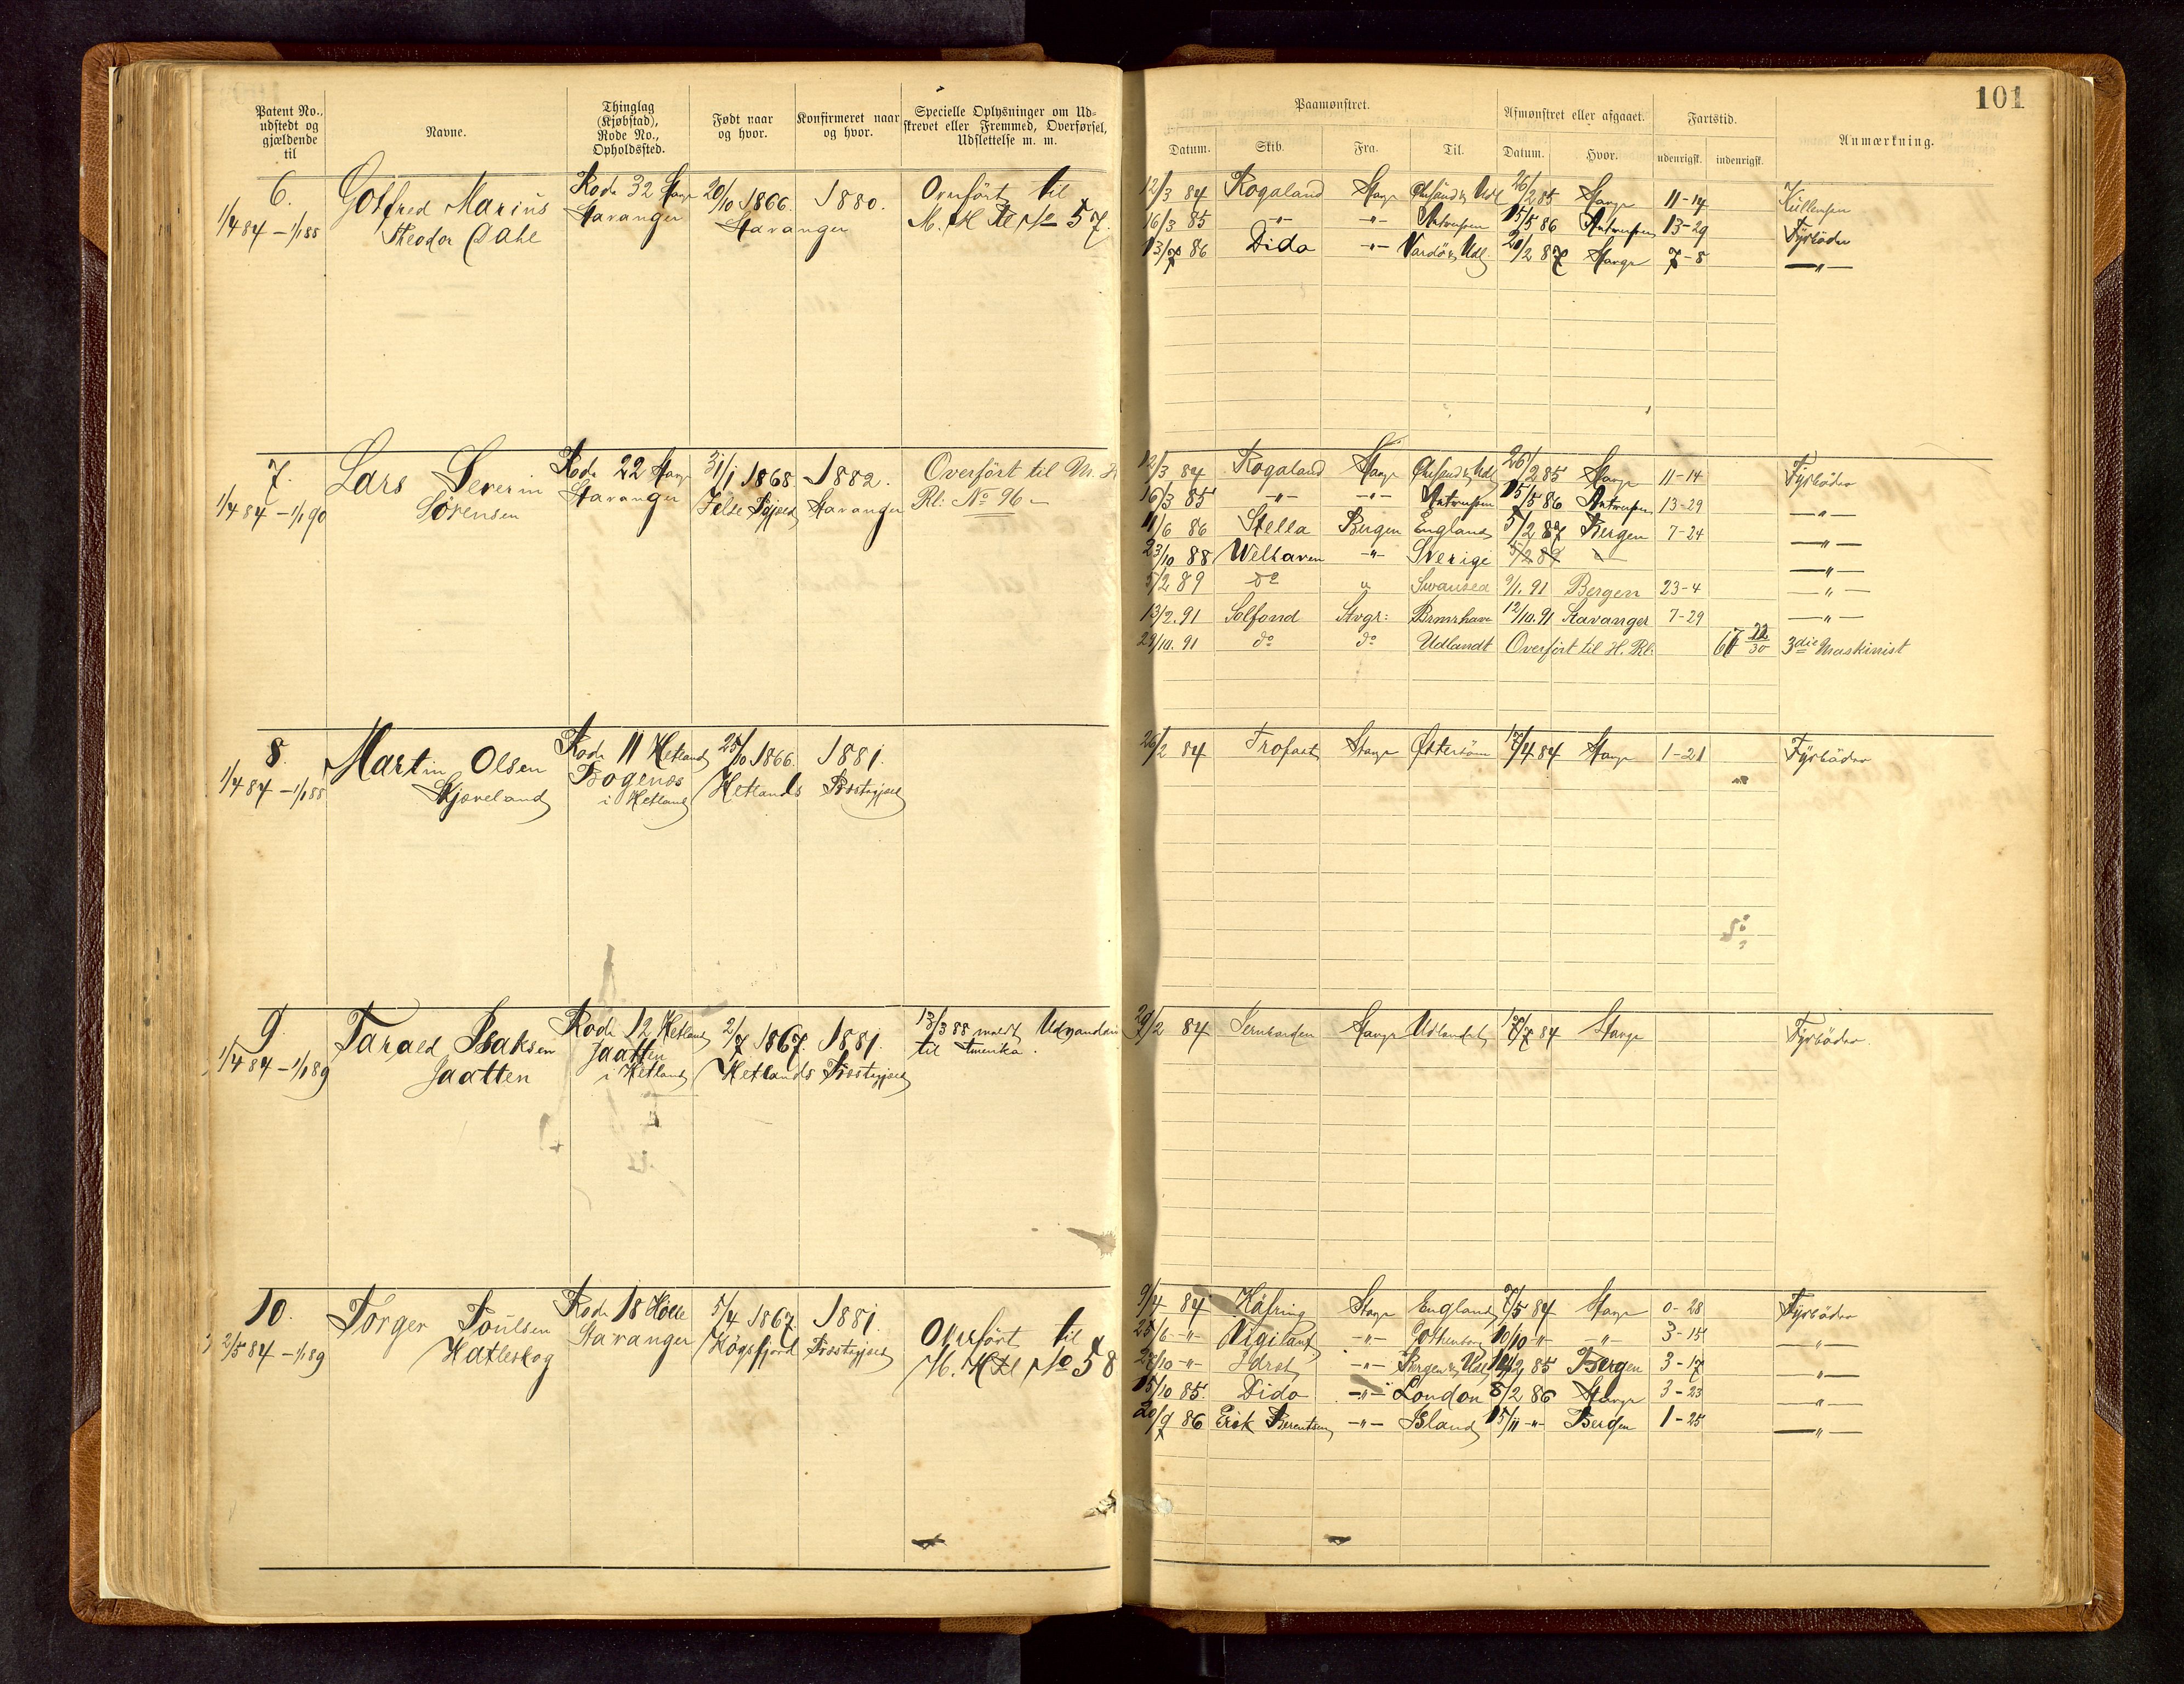 101
Patent No., udstedt og gjældende til
Navne.
Thinglag (Kjøbstad), Rode No., Opholdssted.
Født naar og hvor.
Konfirmeret naar og hvor.
Specielle Oplysninger om Udskrevet eller Fremmed, Overførsel, Udslettelse m. m.
Paamønstret.
Afmønstret eller afgaaet.
Fartstid.
Anmærkning.
Datum. Skib. Fra. Til. Datum. Hvor. udenrigsk. indenrigsk.
6. Gotfred Marius Rode 32 Stavgr 20/10 1866. 1880. Overført til
1/4 84 – 1/1 88 Theodor Dahl Stavanger Stavanger No 57.
12/3 84 Rogaland Stavgr 26/2 85 Stavgr 11-14 Kullemper
16/3 85 –"– –"– Antwerpen 15/5 86 Antwerpen 13-29 Fyrbøder
13/7 86 Dido –"– Vardø & Udl. 21/2 87 Stavgr 7-8 –"–
7. Lars Severin Rode 22 Stavgr 31/1 1868 1882. Overført til M. H
1/4 84 – 1/1 90 Sørensen Stavanger Jelse Pgjeld Stavanger Rl: No 96 –
12/3 84 Rogaland Stavgr 26/2 85 Stavgr 11-14 Fyrbøder
16/3 85 –"– –"– Antwerpen 15/5 86 Antwerpen 13-29 –"–
11/6 86 Stella Bergen England 5/2 87 Bergen 7-24 –"–
23/10 88 Welhaven –"– Sverige 5/2 89 –"–
5/2 89 do " Swansea 9/1. 91 Bergen 23-4 –"–
13/2. 91 Solfond Stvgr: Brmrhave 12/10. 91 Stavanger 7-29 –"–
29/10. 91 do do Udlandt Overført til H. Rl: 22/30 3die Maskinist
8. Martin Olsen Rode 11 Hetland 25/10 1866. 1881.
1/4 84 – 1/1 88 Skjæveland Bogenæs i Hetland Hetlands Præstegjeld
26/2 84 Trofast Stavgr Østersøen 17/4 84 Stavgr 1-21 Fyrbøder
9. Tarald Isaksen Rode 12 Hetland 2/7 1867. 1881. 13/3 88 meldt Udvandr
1/4 84 – 1/1 89 Jaatten Jaatten i Hetland Hetlands Præstegjeld til Amerika.
29/2 84 Jernbarden Stavgr Udlandet 17/7 84 Stavgr Fyrbøder.
10. Torger Poulsen Rode 18 Hølle 5/4 1867. 1881. Overført til
2/5 84 – 1/1 89 Hatleskog Stavanger Høgsfjord Præstegjeld No 58
9/4 84 Kåfring Stavgr England 7/5 84 Stavgr 0-28 Fyrbøder
25/6 –"– Vigilant –"– Gothenborg 10/10 –"– –"– 3-15 –"–
27/10 –"– Idræt –"– Bergen & Udl 14/2 85 Bergen 3-17 –"–
15/10 85. Dido –"– London 8/2 86 Stavgr 3-23 –"–
20/9 86 Erik Berentsen –"– Island 15/11 –"– Bergen 1-25 –"–